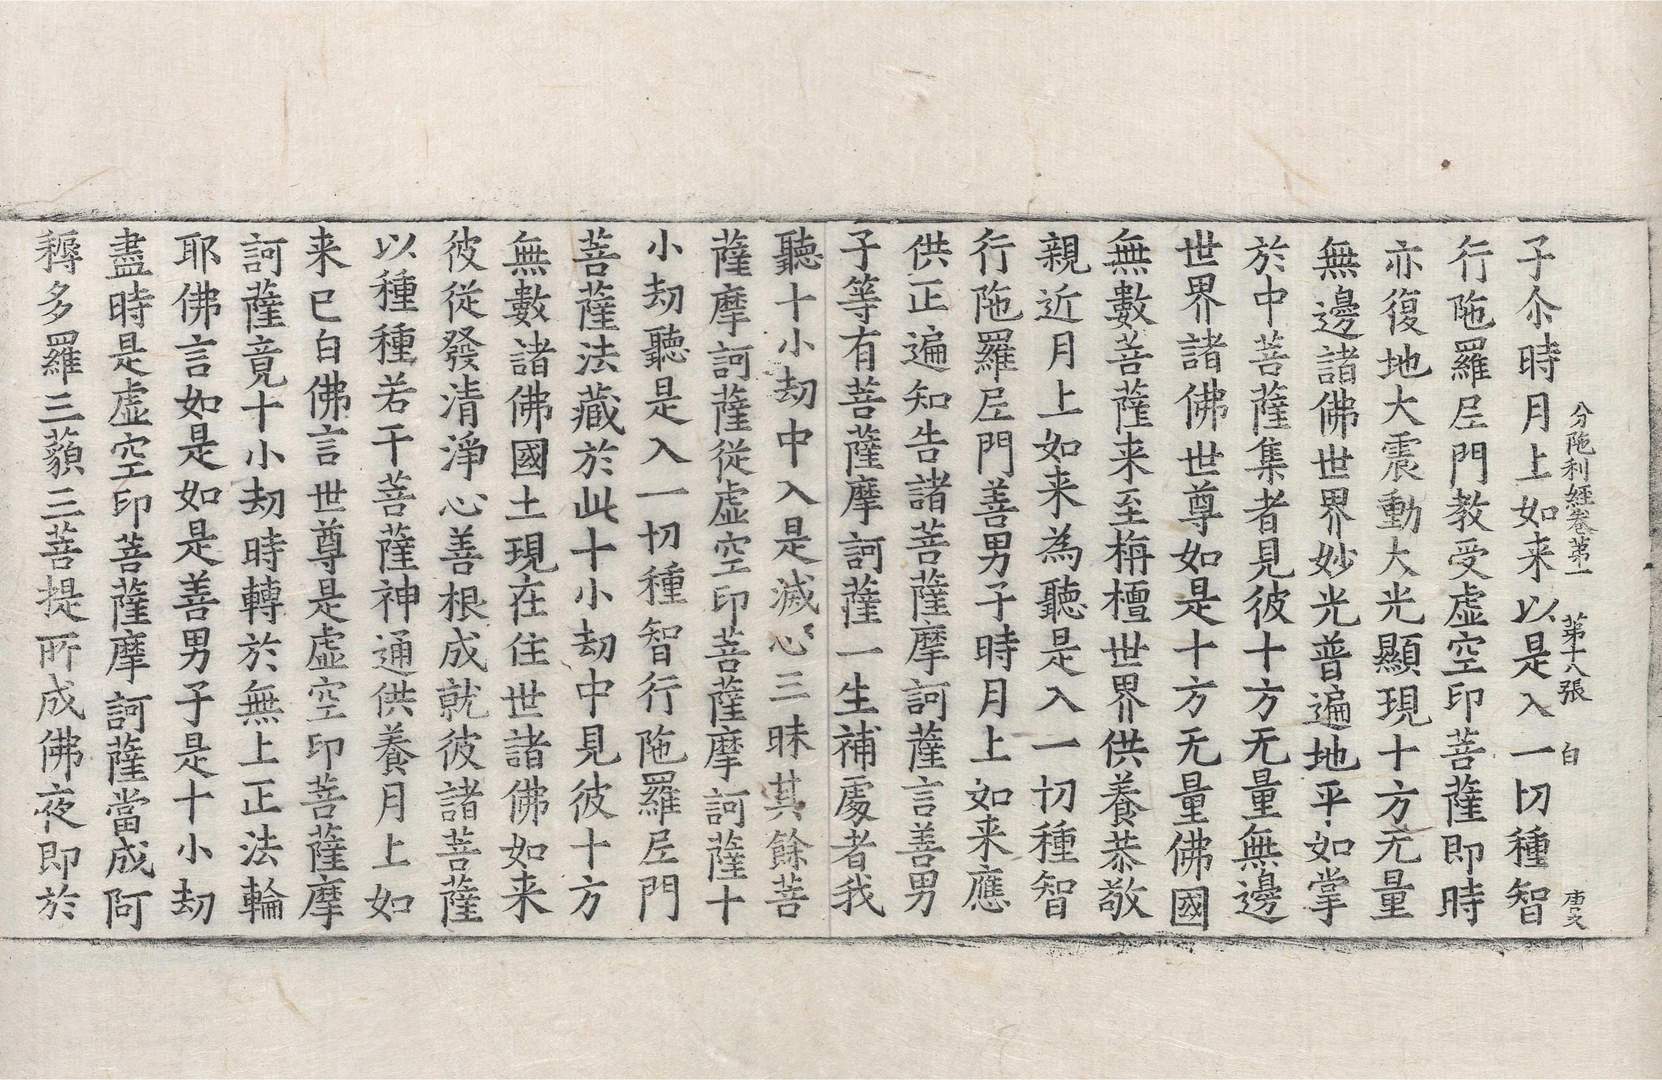 分陁利經卷第一　第十八張　白
子尒時月上如来以是入一切種智
行陁羅尼門教受虛空印菩薩即時
亦復地大震動大光顯現十方无量
無邊諸佛世界妙光普遍地平如掌
於中菩薩集者見彼十方无量無邊
世界諸佛世尊如是十方无量佛國
無數菩薩来至栴檀世界供養恭敬
親近月上如来為聽是入一切種智
行陁羅尼門善男子時月上如来應
供正遍知告諸菩薩摩訶薩言善男
子等有菩薩摩訶薩一生補處者我
聽十小劫中入是滅心三昧其餘菩
薩摩訶薩從虛空印菩薩摩訶薩十
小劫聽是入一切種智行陁羅尼門
菩薩法藏於此十小劫中見彼十方
無數諸佛國土現在住世諸佛如来
彼從發清淨心善根成就彼諸菩薩
以種種若干菩薩神通供養月上如
来已白佛言世尊是虛空印菩薩摩
訶薩竟十小劫時轉於無上正法輪
耶佛言如是如是善男子是十小劫
盡時是虛空印菩薩摩訶薩當成阿
耨多羅三藐三菩提所成佛夜即於